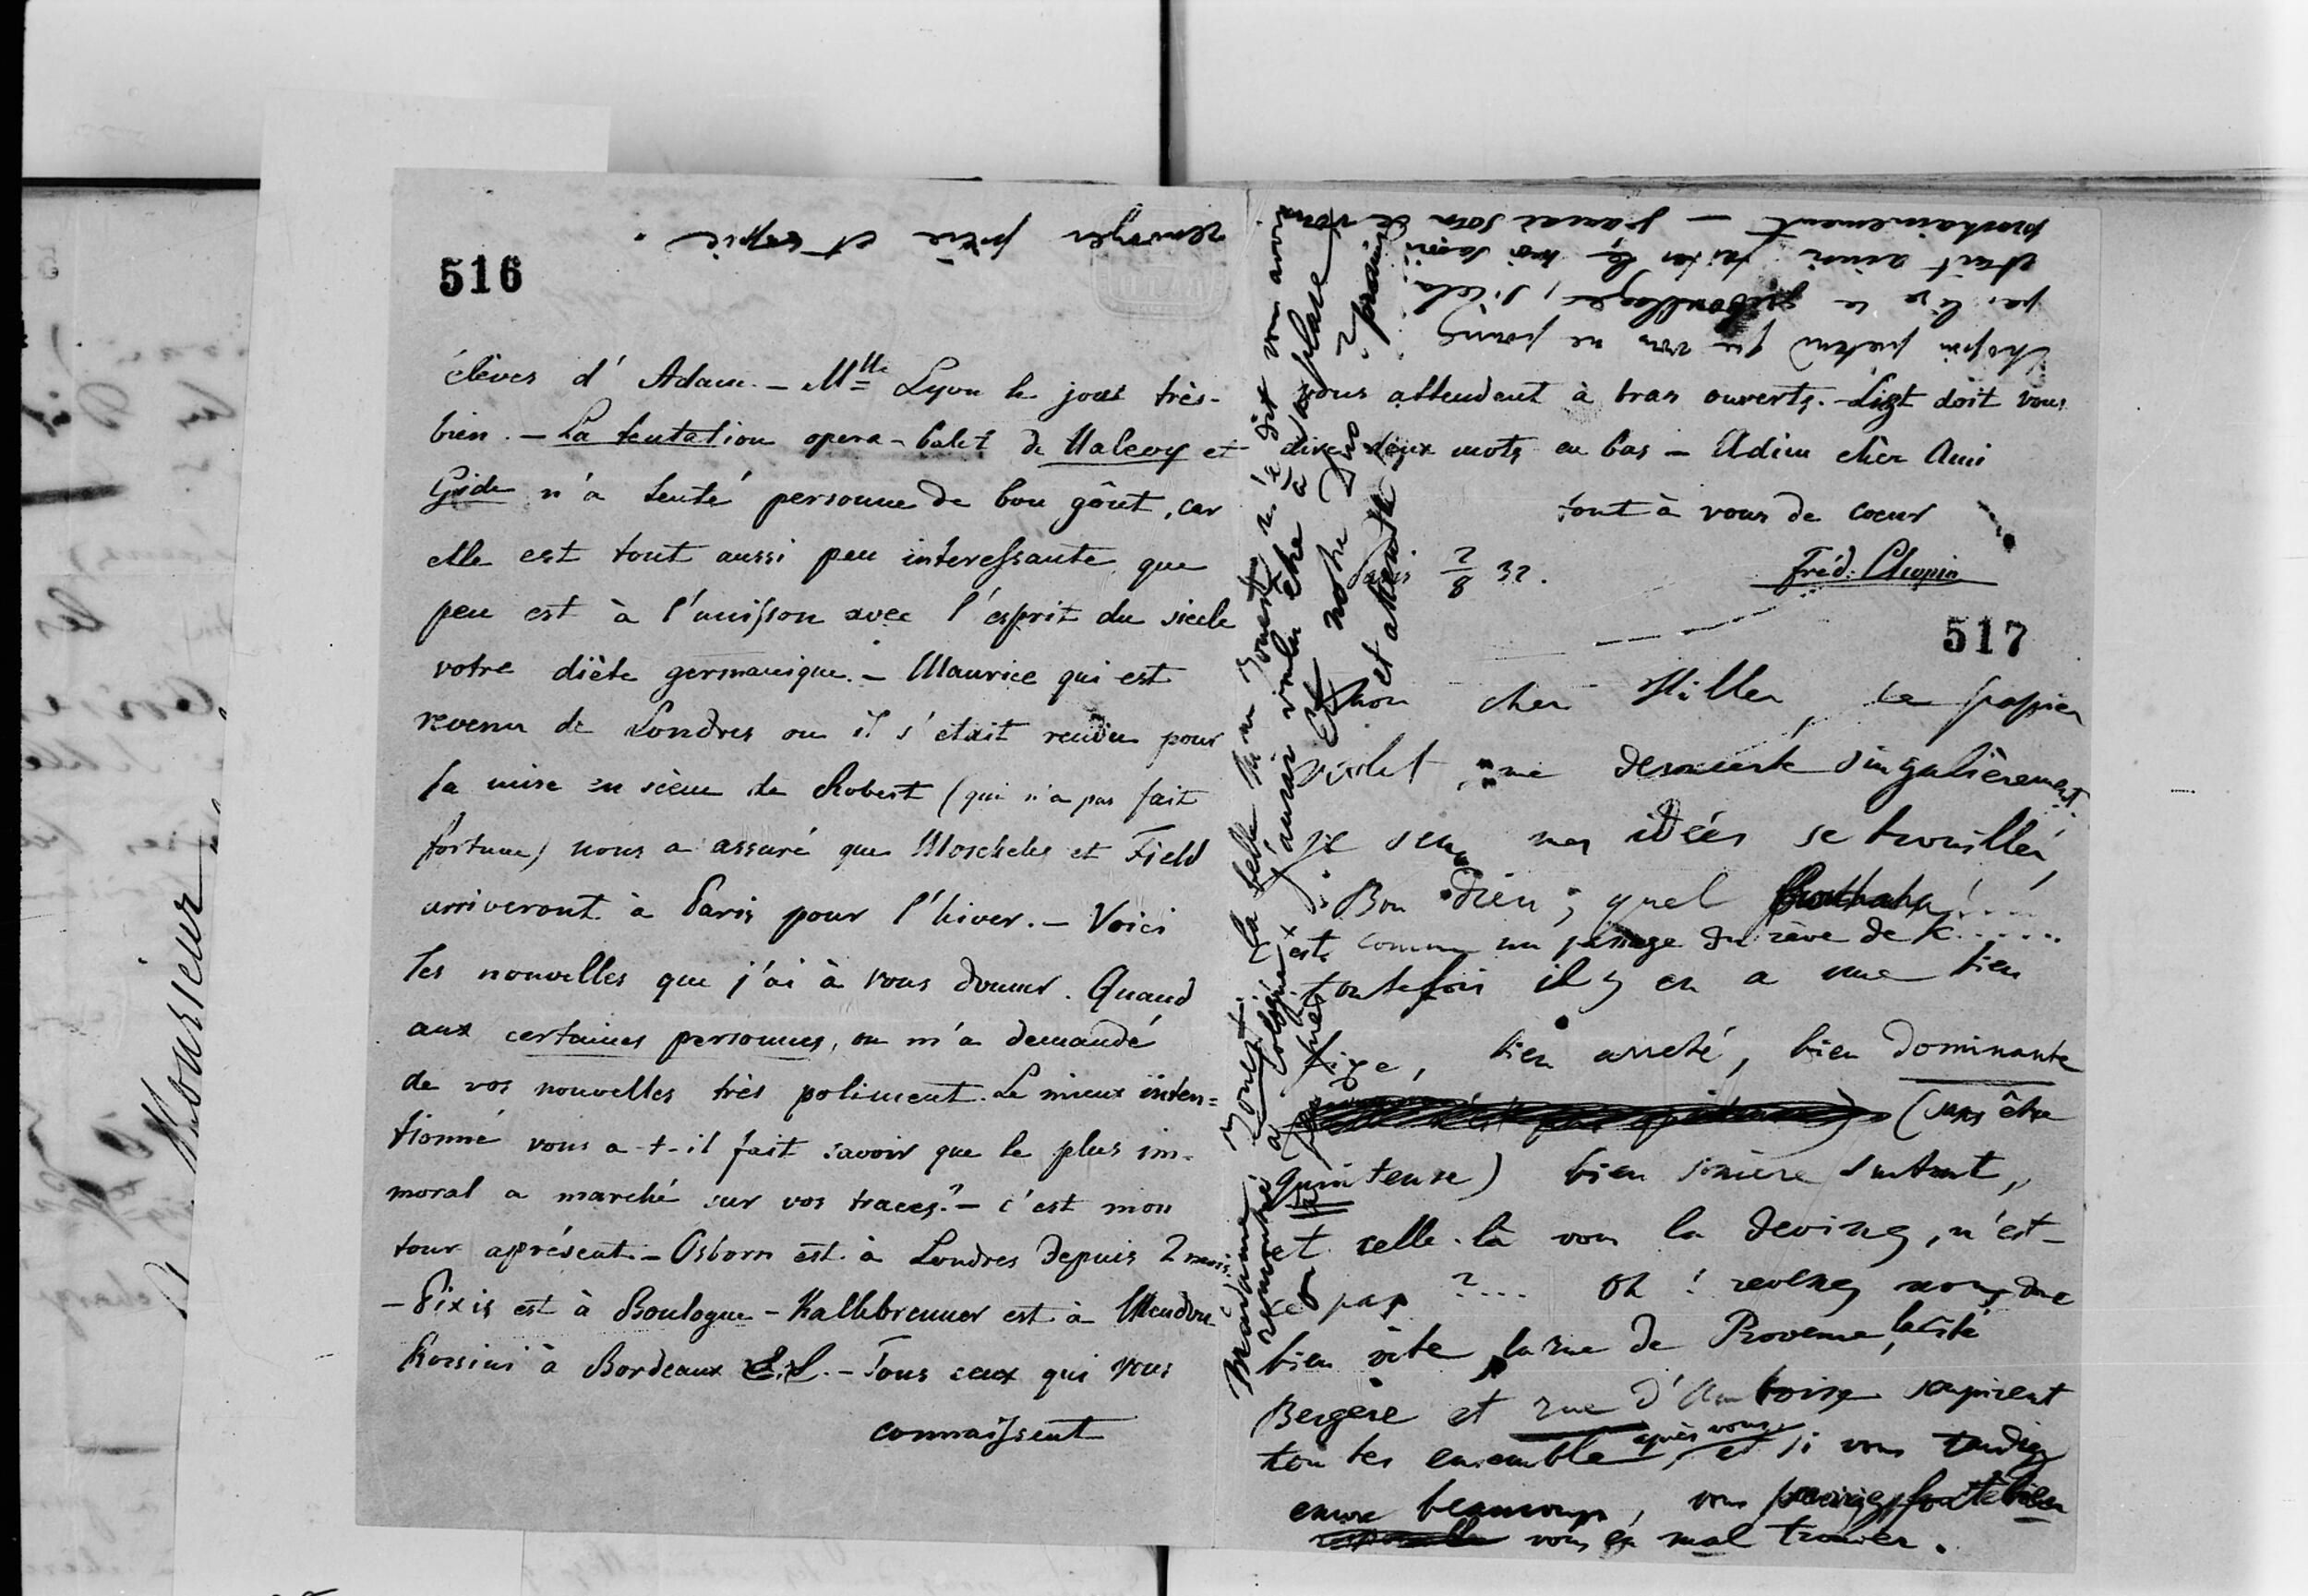 516
élèves d'Adam. — Mlle Lyon les joue très-
bien. — La tentation opera-balet de Halevy et
Gide n'a tenté personne de bon gôut, car
elle est tout aussi peu interessante que
peu est à l'unisson avec l'esprit du siecle
votre diète germanique. — Maurice qui est
revenu de Londres ou il s'etait rendu pour
la mise en scène de Robert (qui n'a pas fait
fortune) nous a assuré que Moscheles et Field
arriveront à Paris pour l'hiver. — Voici
les nouvelles que j'ai à vous donner. Quand
aux certaines personnes, on m'a demandé
de vos nouvelles très poliment. Le mieux inten=
tionné vous a-t-il fait savoir que le plus im-
moral a marché sur vos traces? — c'est mon
tour apprésent. — Osborn est à Londres depuis 2 mois.
— Pixis est à Boulogne — Kalkbrenner est à Meudon
Rossini à Bordeaux — Tous ceux qui vous
connaissent
vous attendent à bras ouverts. — Liszt doit vous
dire deux mots en bas — Adieu chèr Ami
tout à vous de coeur
Paris 2/8 32.
Fréd. Chopin
517
Mon cher Hiller, ce papier
violet me deroute singulièrement.
je sens mes idées se trouiller,
Bon Dieu; quel
est comme un passage du rève de
toutefois il y en a une bien
fixe, bien arreté, bien dominante
(sans être
quinteuse) bien sincère surtout,
et celle-là vous la devinez, n'est-
ce pas ?.... Oh! revenez nous donc
bien vite, la rue de Provence, la cité
Bergère et rue d'Amboise soupirent
toutes ensemble après vous, et si vous tardiez
encore beaucoup, vous pourriez fort bien
vous en mal trouver.
Chopin prétend que vous ne pourrez
pas lire ce gribouillages, si cela
était ainsi faites le moi savoir
prochainement —
père et copie.
Madame
la belle
a dit vous avoir
rencontré à Cologne j'aurais voulu être à sa place
Et notre Duo ?
et attendu